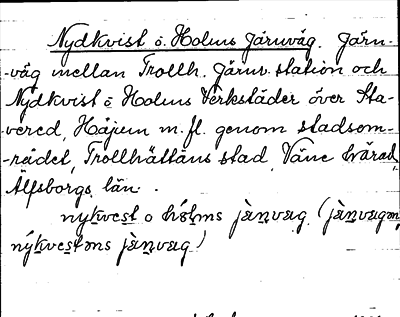 Nydkvist o. Holms Järnväg. Järn-
-väg mellan Trollh. Järnv. station och
Nydkvist o Holms Verkstäder över Sta-
vered, Håjum m. fl. genom stadsom-
-rådet, Trollhättans stad, Väne härad,
Älfsborgs län.
nykvest o hólms jànvæg (jànvægən,
nýkvestəns jànvæg)